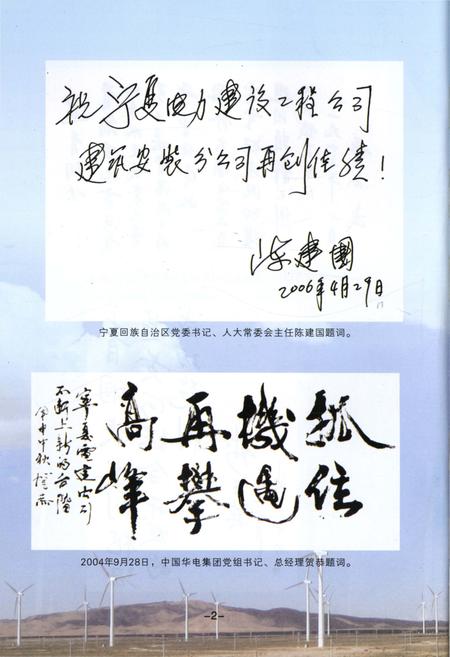 祝宁夏电力建设工程公司
建筑安装分公司再创佳绩！
陈建国
2006年4月29日
宁夏回族自治区党委书记、人大常委会主任陈建国题词。
抓住
機遇
再攀
高峰
寧夏電建公司
不断上新的台階
甲申中秋 賀恭
2004年9月28日，中国华电集团党组书记、总经理贺恭题词。
-2-